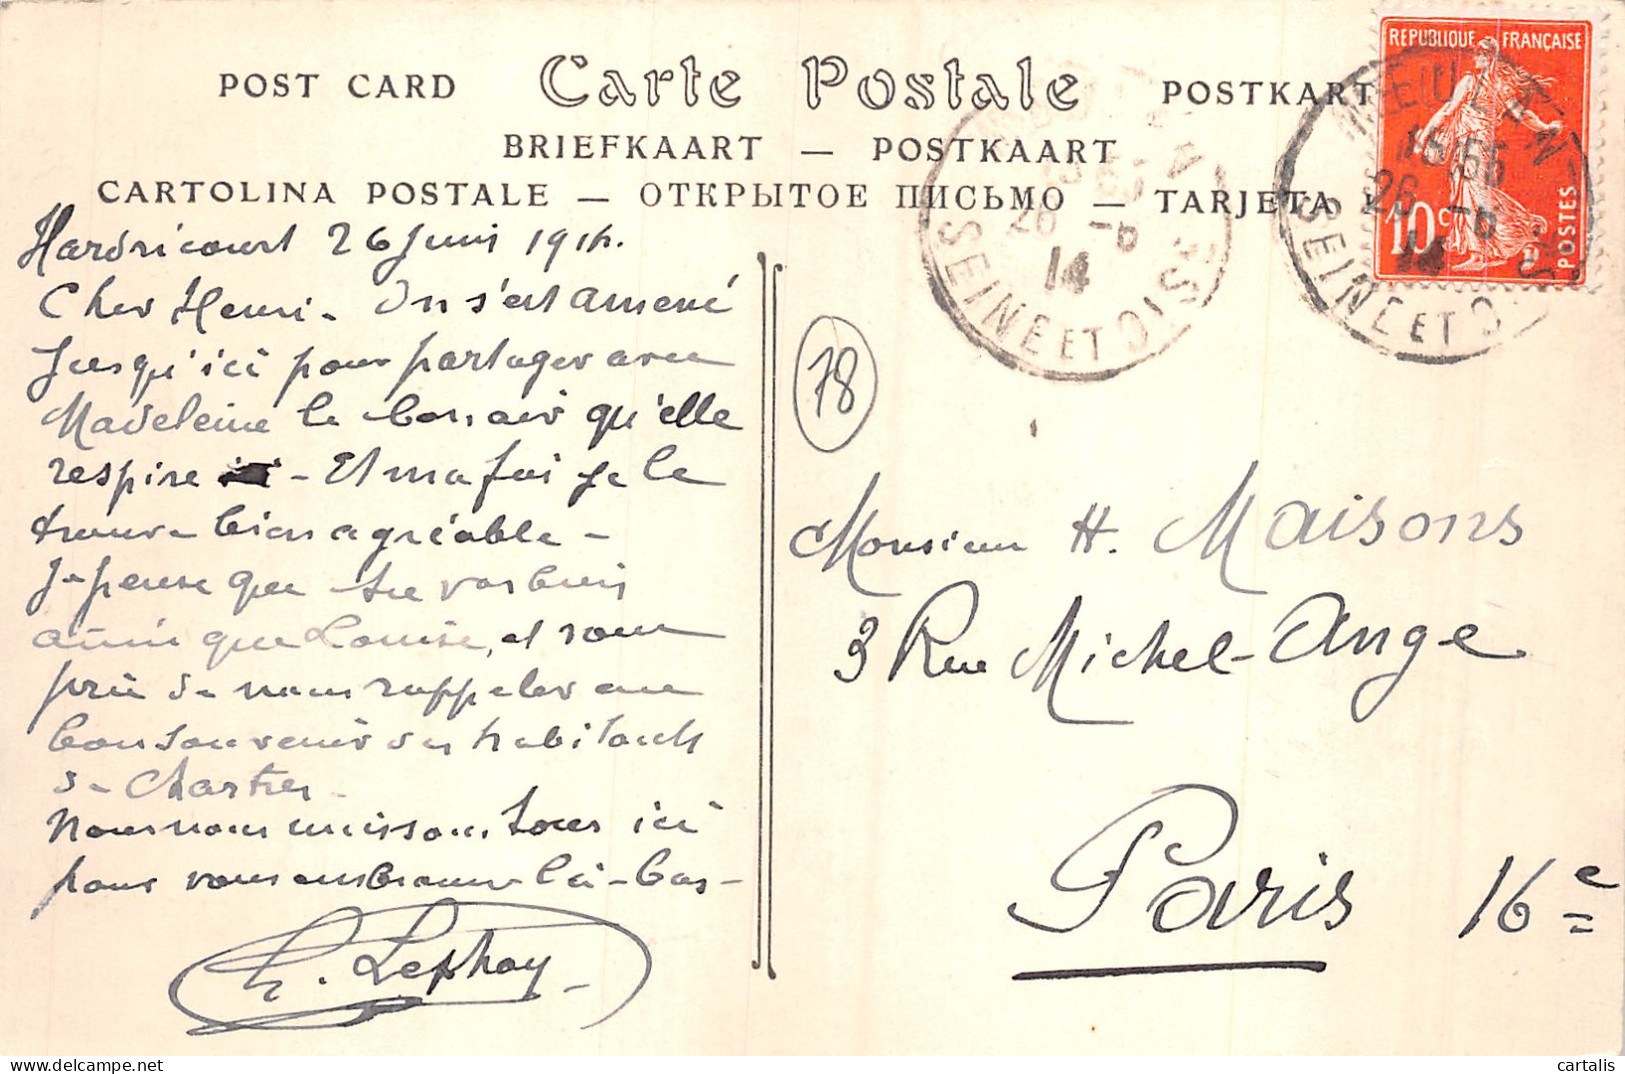 POST CARD Carte Postale POSTKART
BRIEFKAART — POSTKAART
CARTOLINA POSTALE — ОТКРЫТОЕ ПИСЬМО — TARJETA
REPUBLIQUE FRANÇAISE
10c POSTES
MEULAN
15 55
26 -6
14
SEINE ET OISE
26 -6
14
SEINE ET OISE
Hardricourt 26 Juin 1914.
Cher Henri - On s'est amené
jusqu'ici pour partager avec
Madeleine le bon air qu'elle
respire ici - Et ma foi je le
trouve bien agréable -
Je pense que tu vas bien
ainsi que Louise, et vous
prie de nous rappeler au
bon souvenir des habitants
de Chartres -
Nous nous unissons tous ici
pour vous embrasser là-bas -
78
Monsieur H. Maisons
3 Rue Michel-Ange
Paris 16e
cartalis